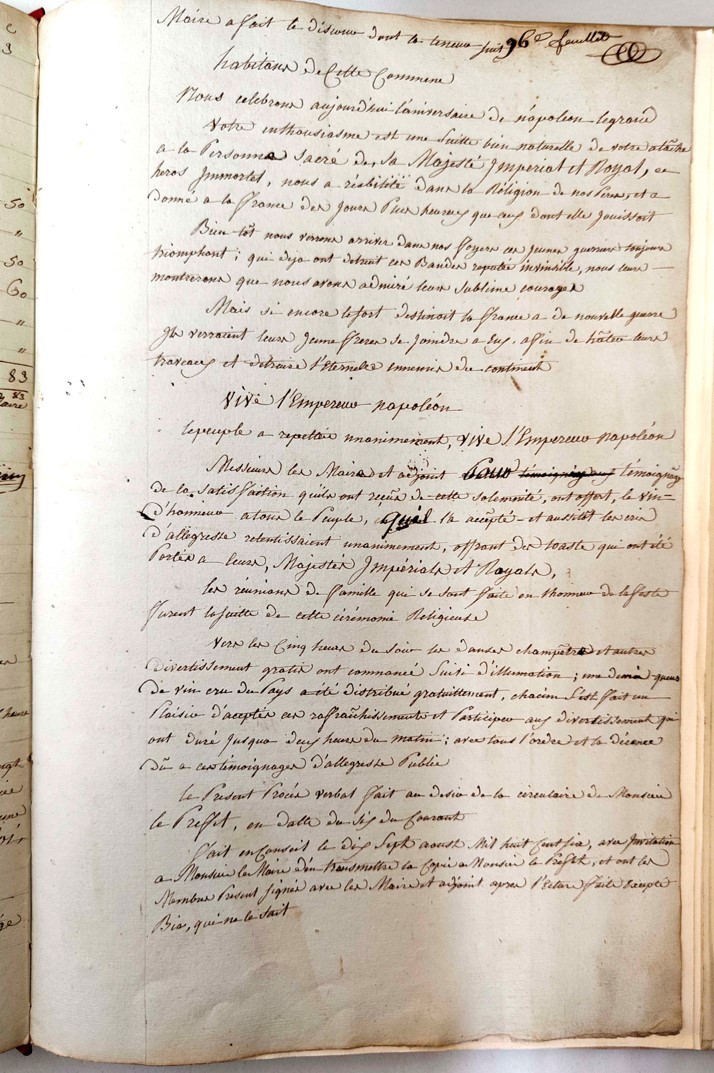 Maire a fait le discour dont la teneur suit 96e feuillet
habitans de Cette Commune
Nous celebrons aujourd'hui l'aniversaire de napoleon legrand
Votre enthousiasme est une suitte bien naturelle de votre atache
a la Personne Sacré de, sa Majesté Imperial et Royal, ce
heros Immortel, nous a rétabilité dans la Réligion de nos Peres, et a
donné a la france des Jours Plus heureux que ceux dont elle Jouissoit
Bien tôt nous verrons arriver dans nos foyers ces Jeunes guerriers toujours
triomphant; qui deja ont detruit ces Bandes reputée invinsible, nous leurs
montrerons que nous avons admiré leurs sublime courage
Mais si encore le sort destinoit la france a de nouvelle guerre
Ils verraient leurs Jeune freres se Joindre a Eux. afin de hâter leurs
travaux et détruire l'Eternelle ennemie du continent
Vive l'Empereur napoléon
le peuple a repettée unanimement, Vive l'Empereur napoléon
Messieurs les Maire et adjoint témoignage
de la satisfaction qu'ils ont reçue de cette solemnité, ont offert, le vin
d'honneur a tout le Peuple, quil l'a accepté et aussitôt les cris
d'allégresse retentissaient unanimement, offrant des toasts qui ont été
Portés a leurs, Majestés Impérials et Royals,
les réunions de famille qui se sont faite en l'honneur de la feste
furent la suitte de cette cérémonie Religieuse
Vers les Cinq heures du soir les danses champêtres et autres
Divertissement gratis ont commancé Suivi d'illumation; une demie queue
de vin cru du Pays a été distribué gratuittement, chacun s'est fait un
Plaisir d'accepter ces raffraîchissements et Participer aux divertissement qui
ont duré Jusqua deux heures du matin; avec tous l'ordre et la décence
dû a ces témoignages d'allegresse Public
le Present Procès verbal fait au desir de la circulaire de Monsieur
le Preffet, en datte du Six du Courant
fait en Conseil le dix Sept aoust Mil huit Cent Six, avec Invitation
a Monsieur le Maire d'en transmettre la Copie a Monsieur le Preffet, et ont les
Membres Present signés avec les Maire et adjoint apres lecture faite Excepté
Bis, qui ne le sait